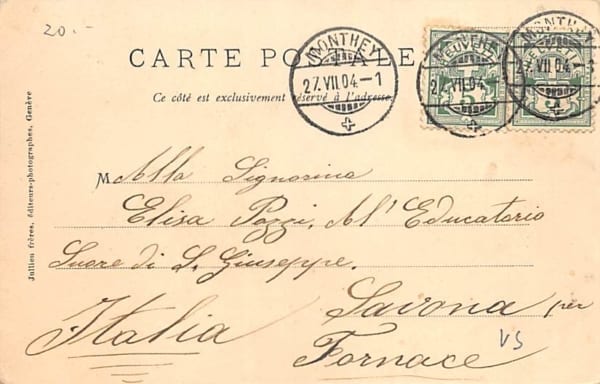 20.-
CARTE POSTALE
MONTHEY
27.VII.04-1
MONTHEY
27.VII.04-1
HELVETIA
5
Ce côté est exclusivement réservé à l'adresse.
M Alla Signorina
Elisa Pozzi, All' Educatorio
Suore di S. Giuseppe.
Savona per
Italia
Fornace
VS
Jullien frères, éditeurs-photographes, Genève